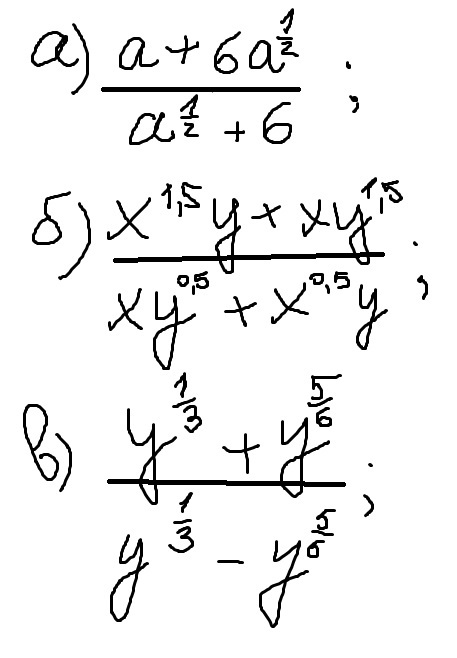 а) (a + 6a^(1/2)) / (a^(1/2) + 6) ;
б) (x^(1,5)y + xy^(1,5)) / (xy^(0,5) + x^(0,5)y) ;
в) (y^(1/3) + y^(5/6)) / (y^(1/3) - y^(5/6)) ;